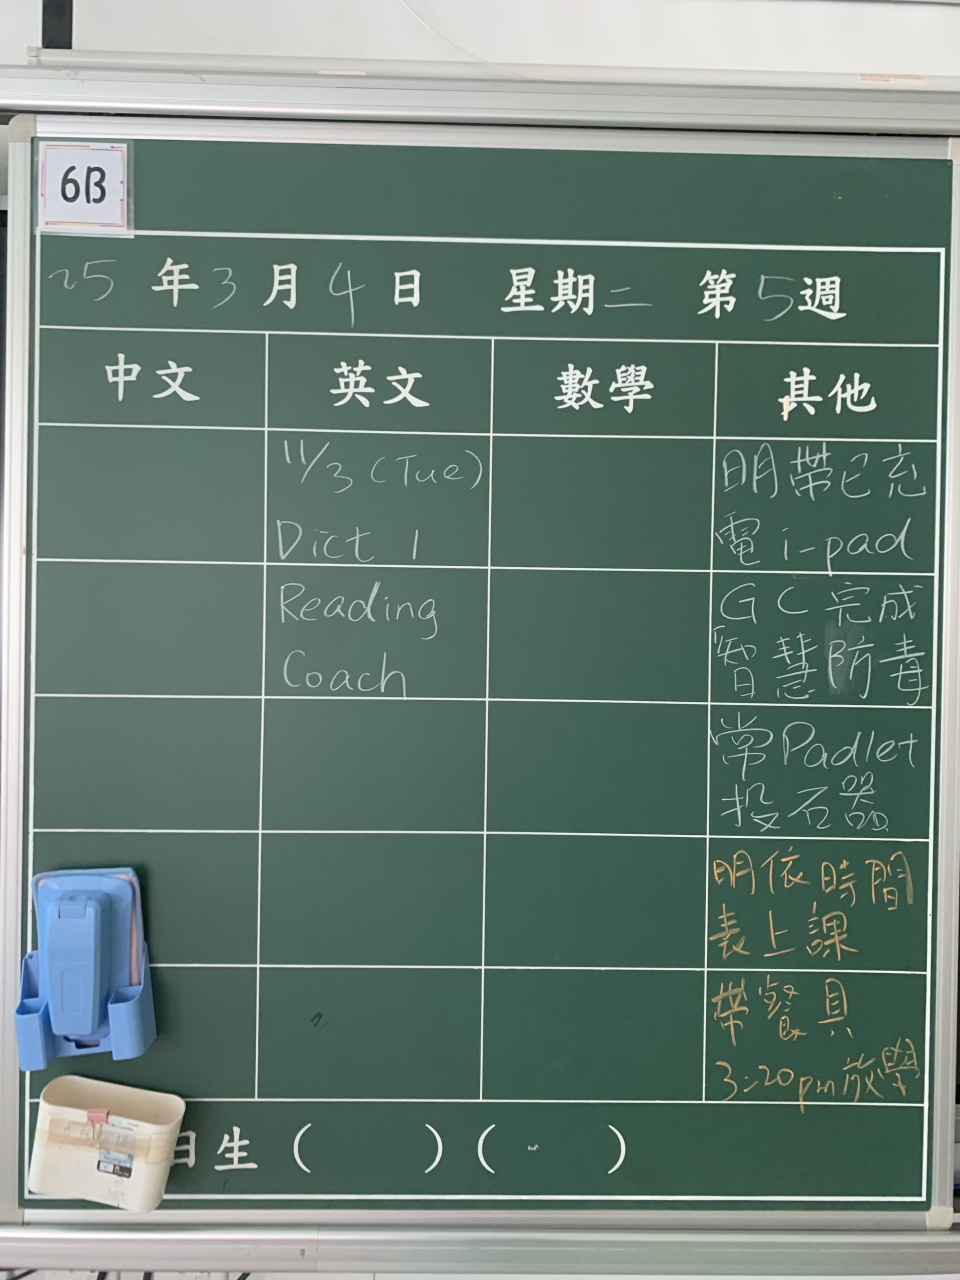 6B
25年3月4日 星期二 第5週
中文 英文 數學 其他
11/3 (Tue)
Dict 1
Reading
Coach
明帶已充
電 i-pad
GC 完成
智慧防毒
常Padlet
投石器
明依時間
表上課
帶餐具
3:20pm放學
日生( )( )